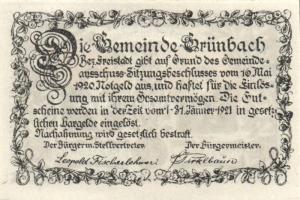 Die Gemeinde Grünbach
Bez. Freistadt gibt auf Grund des Gemeinde-
ausschuss-Sitzungsbeschlusses vom 16. Mai
1920 Notgeld aus, und haftet für die Einlös-
ung mit ihrem Gesamtvermögen. Die Gut-
scheine werden in der Zeit vom 1-31 Jänner 1921 in gesetz-
lichen Bargelde eingelöst.
Nachahmung wird gesetzlich bestraft.
Der Bürgerm. Stellvertreter. Der Bürgermeister.
Leopold